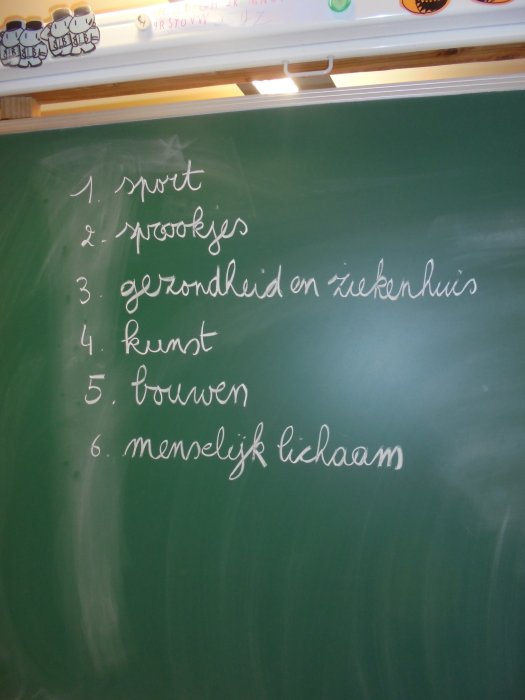 1. sport
2. sprookjes
3. gezondheid en ziekenhuis
4. kunst
5. bouwen
6. menselijk lichaam